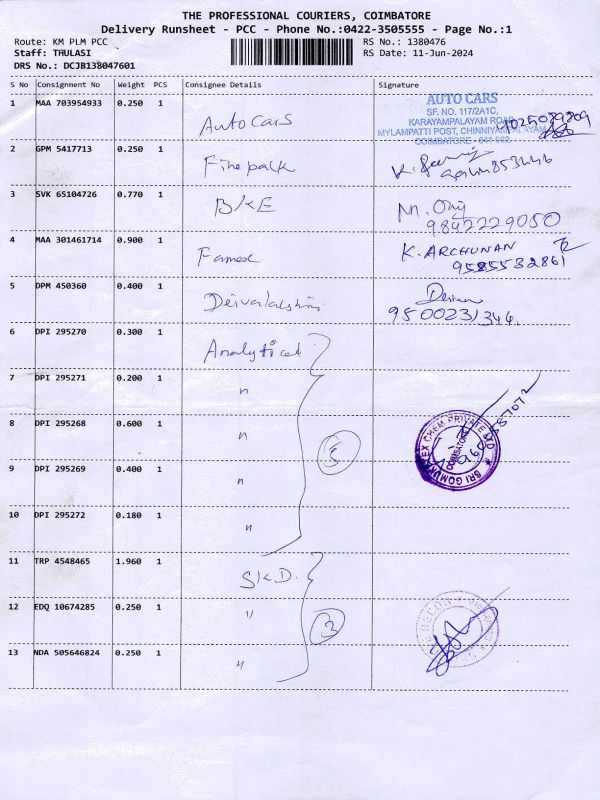 THE PROFESSIONAL COURIERS, COIMBATORE
Delivery Runsheet - PCC - Phone No.:0422-3505555 - Page No.:1
Route: KM PLM PCC RS No.: 1380476
Staff: THULASI RS Date: 11-Jun-2024
DRS No.: DCJB138047601
S No Consignment No Weight PCS Consignee Details Signature
1 MAA 703954933 0.250 1 Auto Cars
AUTO CARS
SF. NO. 117/2A1C,
KARAYAMPALAYAM ROAD
MYLAMPATTI POST, CHINNIYAMPALAYAM
COIMBATORE - 641 062.
2 GPM 5417713 0.250 1 Fine pack K.
3 SVK 65104726 0.770 1 BKE M.
9842229050
4 MAA 301461714 0.900 1 K. ARCHUNAN
9585532861
5 DPM 450360 0.400 1
9500231344
6 DPI 295270 0.300 1 Analytical
7 DPI 295271 0.200 1 "
8 DPI 295268 0.600 1 " 5
SRI GOMUKI EX CHEM PRIVATE LTD
COIMBATORE
9 DPI 295269 0.400 1 "
10 DPI 295272 0.180 1 "
11 TRP 4548465 1.960 1 SKD.
12 EDQ 10674285 0.250 1 " 3
13 NDA 505646824 0.250 1 "